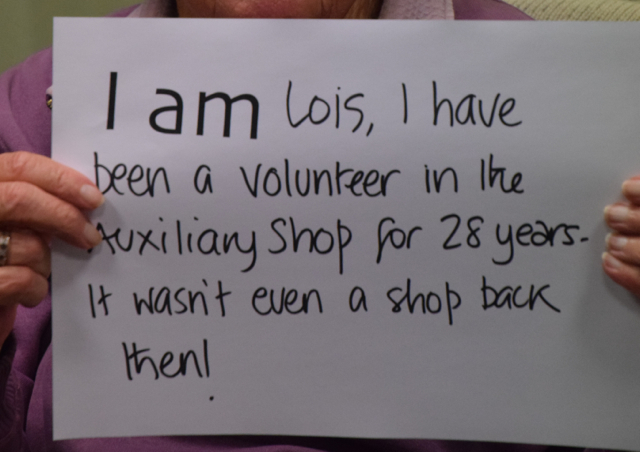 I am Lois, I have
been a volunteer in the
Auxiliary Shop for 28 years.
It wasn't even a shop back
then!